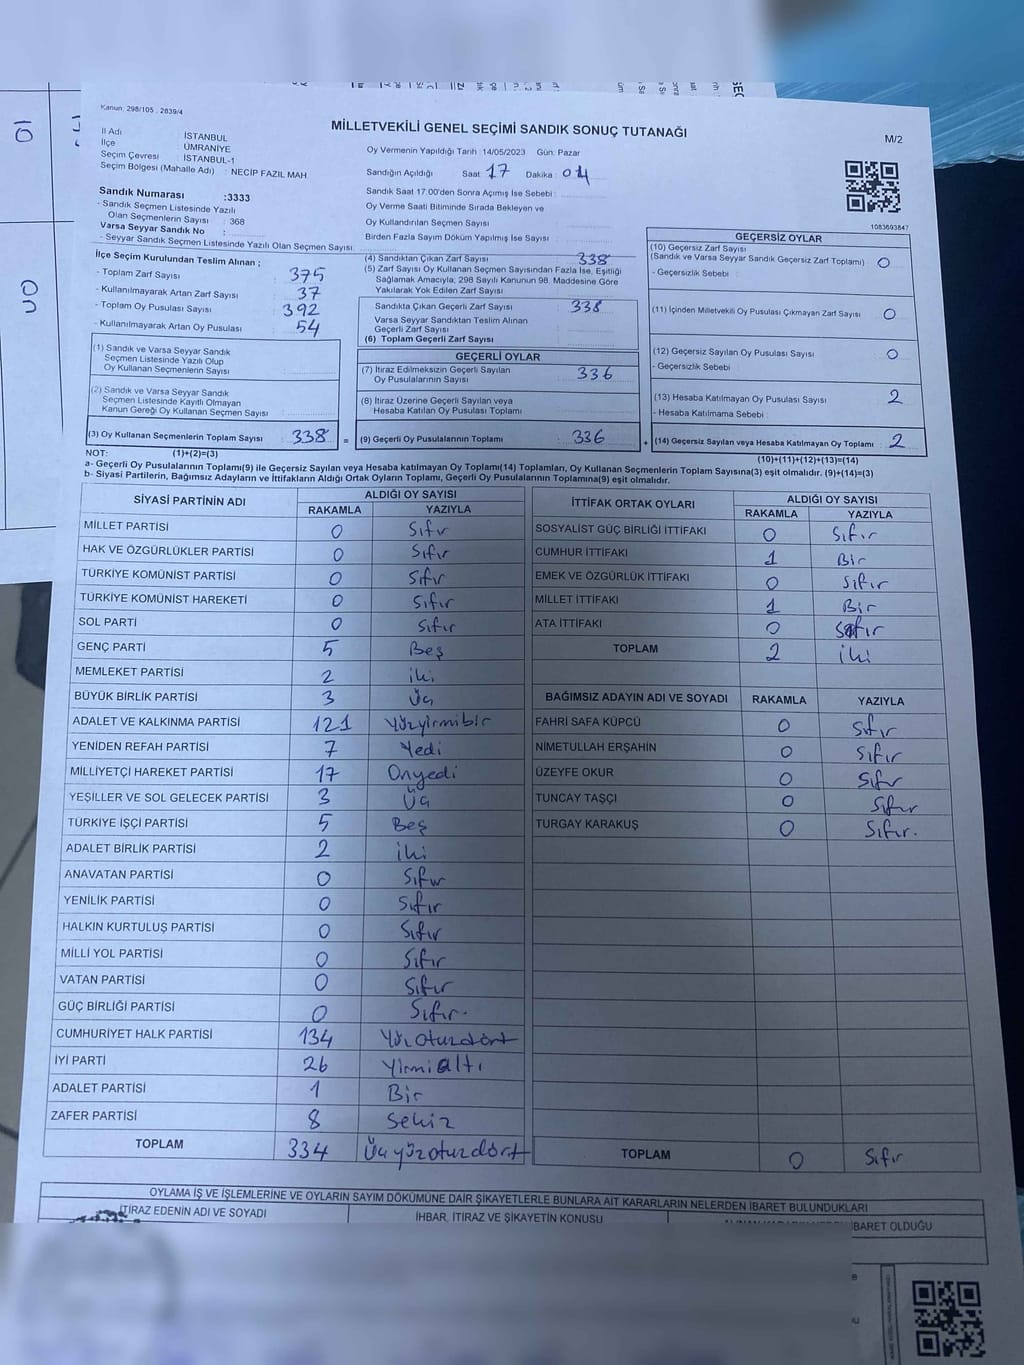 Kanun: 298/105 . 2839/4
MİLLETVEKİLİ GENEL SEÇİMİ SANDIK SONUÇ TUTANAĞI
M/2
İl Adı : İSTANBUL
İlçe : ÜMRANİYE
Seçim Çevresi : İSTANBUL-1
Seçim Bölgesi (Mahalle Adı) : NECİP FAZIL MAH.
Oy Vermenin Yapıldığı Tarih :14/05/2023 Gün: Pazar
Sandığın Açıldığı Saat : 17 Dakika : 04
Sandık Saat 17.00'den Sonra Açımış İse Sebebi :
Oy Verme Saati Bitiminde Sırada Bekleyen ve
Oy Kullandırılan Seçmen Sayısı
Birden Fazla Sayım Döküm Yapılmış İse Sayısı :
Sandık Numarası :3333
- Sandık Seçmen Listesinde Yazılı
Olan Seçmenlerin Sayısı : 368
Varsa Seyyar Sandık No :
- Seyyar Sandık Seçmen Listesinde Yazılı Olan Seçmen Sayısı
1083693847
İlçe Seçim Kurulundan Teslim Alınan ;
- Toplam Zarf Sayısı : 375
- Kullanılmayarak Artan Zarf Sayısı : 37
- Toplam Oy Pusulası Sayısı : 392
- Kullanılmayarak Artan Oy Pusulası : 54
(1) Sandık ve Varsa Seyyar Sandık
Seçmen Listesinde Yazılı Olup
Oy Kullanan Seçmenlerin Sayısı :
(2) Sandık ve Varsa Seyyar Sandık
Seçmen Listesinde Kayıtlı Olmayan
Kanun Gereği Oy Kullanan Seçmen Sayısı :
(3) Oy Kullanan Seçmenlerin Toplam Sayısı : 338 =
(4) Sandıktan Çıkan Zarf Sayısı : 338
(5) Zarf Sayısı Oy Kullanan Seçmen Sayısından Fazla İse, Eşitliği
Sağlamak Amacıyla, 298 Sayılı Kanunun 98. Maddesine Göre
Yakılarak Yok Edilen Zarf Sayısı :
Sandıkta Çıkan Geçerli Zarf Sayısı : 338
Varsa Seyyar Sandıktan Teslim Alınan
Geçerli Zarf Sayısı :
(6) Toplam Geçerli Zarf Sayısı :
GEÇERLİ OYLAR
(7) İtiraz Edilmeksizin Geçerli Sayılan
Oy Pusulalarının Sayısı : 336
(8) İtiraz Üzerine Geçerli Sayılan veya
Hesaba Katılan Oy Pusulası Toplamı :
(9) Geçerli Oy Pusulalarının Toplamı : 336 +
GEÇERSİZ OYLAR
(10) Geçersiz Zarf Sayısı
(Sandık ve Varsa Seyyar Sandık Geçersiz Zarf Toplamı) : 0
- Geçersizlik Sebebi :
(11) İçinden Milletvekili Oy Pusulası Çıkmayan Zarf Sayısı : 0
(12) Geçersiz Sayılan Oy Pusulası Sayısı : 0
- Geçersizlik Sebebi :
(13) Hesaba Katılmayan Oy Pusulası Sayısı : 2
- Hesaba Katılmama Sebebi :
(14) Geçersiz Sayılan veya Hesaba Katılmayan Oy Toplamı : 2
NOT: (1)+(2)=(3)
(10)+(11)+(12)+(13)=(14)
a- Geçerli Oy Pusulalarının Toplamı(9) ile Geçersiz Sayılan veya Hesaba katılmayan Oy Toplamı(14) Toplamları, Oy Kullanan Seçmenlerin Toplam Sayısına(3) eşit olmalıdır. (9)+(14)=(3)
b- Siyasi Partilerin, Bağımsız Adayların ve İttifakların Aldığı Ortak Oyların Toplamı, Geçerli Oy Pusulalarının Toplamına(9) eşit olmalıdır.
SİYASİ PARTİNİN ADI ALDIĞI OY SAYISI
RAKAMLA YAZIYLA
MİLLET PARTİSİ 0 Sıfır
HAK VE ÖZGÜRLÜKLER PARTİSİ 0 Sıfır
TÜRKİYE KOMÜNİST PARTİSİ 0 Sıfır
TÜRKİYE KOMÜNİST HAREKETİ 0 Sıfır
SOL PARTİ 0 Sıfır
GENÇ PARTİ 5 Beş
MEMLEKET PARTİSİ 2 iki
BÜYÜK BİRLİK PARTİSİ 3 Üç
ADALET VE KALKINMA PARTİSİ 121 Yüzyirmibir
YENİDEN REFAH PARTİSİ 7 Yedi
MİLLİYETÇİ HAREKET PARTİSİ 17 Onyedi
YEŞİLLER VE SOL GELECEK PARTİSİ 3 Üç
TÜRKİYE İŞÇİ PARTİSİ 5 Beş
ADALET BİRLİK PARTİSİ 2 iki
ANAVATAN PARTİSİ 0 Sıfır
YENİLİK PARTİSİ 0 Sıfır
HALKIN KURTULUŞ PARTİSİ 0 Sıfır
MİLLİ YOL PARTİSİ 0 Sıfır
VATAN PARTİSİ 0 Sıfır
GÜÇ BİRLİĞİ PARTİSİ 0 Sıfır.
CUMHURİYET HALK PARTİSİ 134 Yüzotuzdört
İYİ PARTİ 26 Yirmialtı
ADALET PARTİSİ 1 Bir
ZAFER PARTİSİ 8 Sekiz
TOPLAM 334 Üçyüzotuzdört
İTTİFAK ORTAK OYLARI ALDIĞI OY SAYISI
RAKAMLA YAZIYLA
SOSYALİST GÜÇ BİRLİĞİ İTTİFAKI 0 Sıfır
CUMHUR İTTİFAKI 1 Bir
EMEK VE ÖZGÜRLÜK İTTİFAKI 0 Sıfır
MİLLET İTTİFAKI 1 Bir
ATA İTTİFAKI 0 Sıfır
TOPLAM 2 iki
BAĞIMSIZ ADAYIN ADI VE SOYADI RAKAMLA YAZIYLA
FAHRİ SAFA KÜPCÜ 0 Sıfır
NİMETULLAH ERŞAHİN 0 Sıfır
ÜZEYFE OKUR 0 Sıfır
TUNCAY TAŞÇI 0 Sıfır
TURGAY KARAKUŞ 0 Sıfır.
TOPLAM 0 Sıfır
OYLAMA İŞ VE İŞLEMLERİNE VE OYLARIN SAYIM DÖKÜMÜNE DAİR ŞİKAYETLERLE BUNLARA AİT KARARLARIN NELERDEN İBARET BULUNDUKLARI
İTİRAZ EDENİN ADI VE SOYADI İHBAR, İTİRAZ VE ŞİKAYETİN KONUSU İBARET OLDUĞU